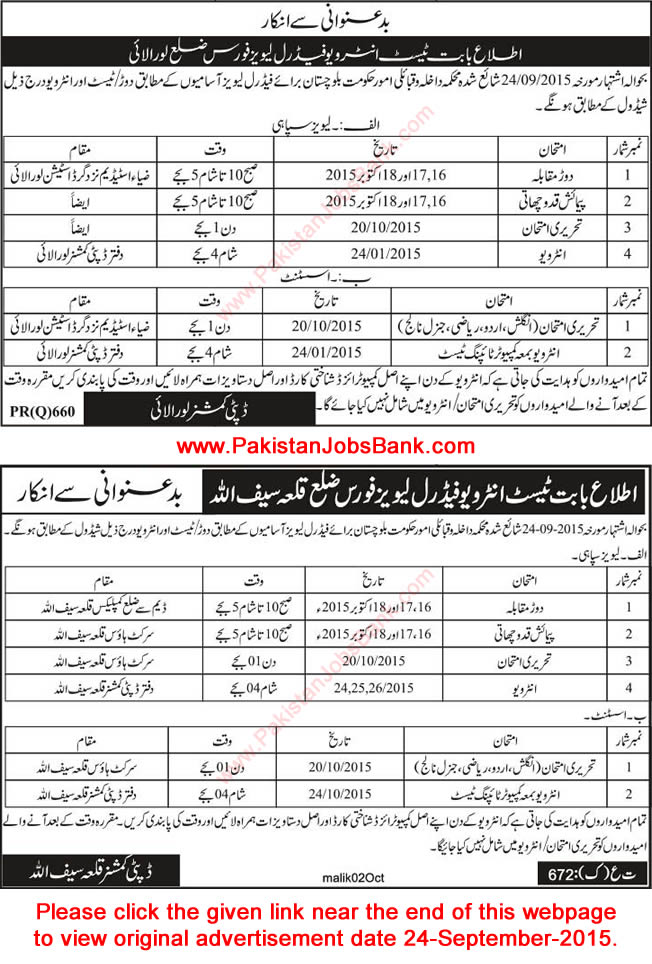 بدعنوانی سے انکار
اطلاع بابت ٹیسٹ انٹرویو فیڈرل لیویز فورس ضلع لورالائی
بحوالہ اشتہار مورخہ 24/09/2015 شائع شدہ محکمہ داخلہ و قبائلی امور حکومت بلوچستان برائے فیڈرل لیویز آسامیوں کے مطابق دوڑ/ٹیسٹ اور انٹرویو درج ذیل
شیڈول کے مطابق ہونگے۔
الف:۔ لیویز سپاہی
نمبر شمار امتحان تاریخ وقت مقام
1 دوڑ مقابلہ 17,16 اور 18 اکتوبر 2015 صبح 10 تا شام 5 بجے ضیاء اسٹیڈیم نزد گرڈ اسٹیشن لورالائی
2 پیمائش قد و چھاتی 17,16 اور 18 اکتوبر 2015 صبح 10 تا شام 5 بجے ایضاً
3 تحریری امتحان 20/10/2015 دن 1 بجے ایضاً
4 انٹرویو 24/01/2015 شام 4 بجے دفتر ڈپٹی کمشنر لورالائی
ب:۔ اسسٹنٹ
نمبر شمار امتحان تاریخ وقت مقام
1 تحریری امتحان (انگلش، اردو، ریاضی، جنرل نالج) 20/10/2015 دن 1 بجے ضیاء اسٹیڈیم نزد گرڈ اسٹیشن لورالائی
2 انٹرویو بمعہ کمپیوٹر ٹائپنگ ٹیسٹ 24/01/2015 شام 4 بجے دفتر ڈپٹی کمشنر لورالائی
تمام امیدواروں کو ہدایت کی جاتی ہے کہ انٹرویو کے دن اپنے اصل کمپیوٹرائزڈ شناختی کارڈ اور اصل دستاویزات ہمراہ لائیں اور وقت کی پابندی کریں مقررہ وقت
کے بعد آنے والے امیدواروں کو تحریری امتحان/انٹرویو میں شامل نہیں کیا جائے گا۔
ڈپٹی کمشنر لورالائی
PR(Q)660
www.PakistanJobsBank.com
اطلاع بابت ٹیسٹ انٹرویو فیڈرل لیویز فورس ضلع قلعہ سیف اللہ
بدعنوانی سے انکار
بحوالہ اشتہار مورخہ 24-09-2015 شائع شدہ محکمہ داخلہ و قبائلی امور حکومت بلوچستان برائے فیڈرل لیویز آسامیوں کے مطابق دوڑ/ٹیسٹ اور انٹرویو درج ذیل شیڈول کے مطابق ہونگے۔
الف۔ لیویز سپاہی۔
نمبر شمار امتحان تاریخ وقت مقام
1 دوڑ مقابلہ 17،16 اور 18 اکتوبر 2015ء صبح 10 تا شام 5 بجے ڈیم سے ضلع کمپلیکس قلعہ سیف اللہ
2 پیمائش قد و چھاتی 17،16 اور 18 اکتوبر 2015ء صبح 10 تا شام 5 بجے سرکٹ ہاؤس قلعہ سیف اللہ
3 تحریری امتحان 20/10/2015 دن 01 بجے سرکٹ ہاؤس قلعہ سیف اللہ
4 انٹرویو 24,25,26/2015 شام 04 بجے دفتر ڈپٹی کمشنر قلعہ سیف اللہ
ب۔ اسسٹنٹ۔
نمبر شمار امتحان تاریخ وقت مقام
1 تحریری امتحان (انگلش، اردو، ریاضی، جنرل نالج) 20/10/2015 دن 01 بجے سرکٹ ہاؤس قلعہ سیف اللہ
2 انٹرویو بمعہ کمپیوٹر ٹائپنگ ٹیسٹ 24/10/2015 شام 04 بجے دفتر ڈپٹی کمشنر قلعہ سیف اللہ
تمام امیدواروں کو ہدایت کی جاتی ہے کہ انٹرویو کے دن اپنے اصل کمپیوٹرائزڈ شناختی کارڈ اور اصل دستاویزات ہمراہ لائیں اور وقت کی پابندی کریں۔ مقررہ وقت کے بعد آنے والے
امیدواروں کو تحریری امتحان/انٹرویو میں شامل نہیں کیا جائیگا۔
ت ع (ک):672
malik02Oct
ڈپٹی کمشنر قلعہ سیف اللہ
Please click the given link near the end of this webpage
to view original advertisement date 24-September-2015.